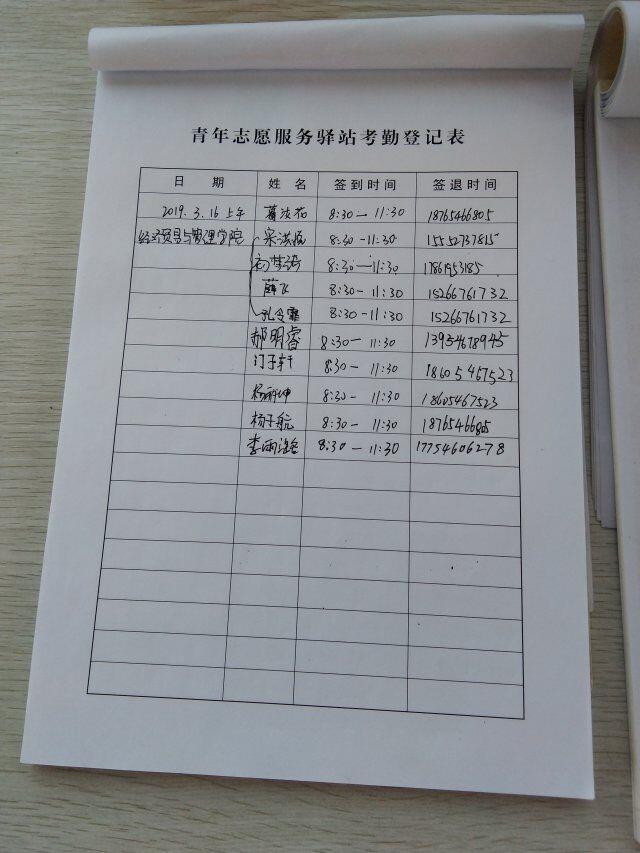 青年志愿服务驿站考勤登记表
日期 姓名 签到时间 签退时间
2019.3.16 上午 8:30-11:30 18765466805
经济贸易与管理学院 8:30-11:30 15552737815
8:30-11:30 17861953185
薛飞 8:30-11:30 15266761732
孔令霜 8:30-11:30 15266761732
郝明睿 8:30-11:30 13954678945
门子轩 8:30-11:30 18605467523
8:30-11:30 18605467523
杨子航 8:30-11:30 18765466805
李雨潞 8:30-11:30 17754606278